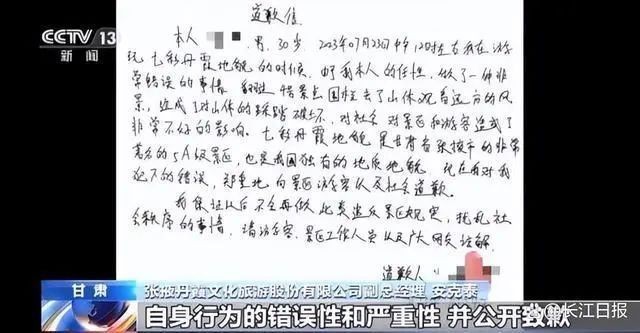 CCTV 13
新闻
道歉信
本人 男, 30岁 2023年07月23日中午12时左右我在游
玩七彩丹霞地貌的时候, 由于我本人的任性, 做了一件非
常错误的事情 翻越 景点围栏去了山体观看远方的风
景, 造成了对山体的踩踏破坏, 对社会 对景区和游客造成了
非常不好的影响。七彩丹霞地貌 是甘肃省张掖市的非常
著名的5A级景区, 也是我国独有的地质地貌 现在我对我
犯下的错误, 郑重地向景区 游客以及社会道歉。
我保证以后不会再做 此类违反景区规定, 扰乱社
会秩序的事情, 请游客 景区工作人员以及广大网友谅解
道歉人
甘肃
张掖丹霞文化旅游股份有限公司副总经理 安克泰
自身行为的错误性和严重性 并公开致歉
@长江日报